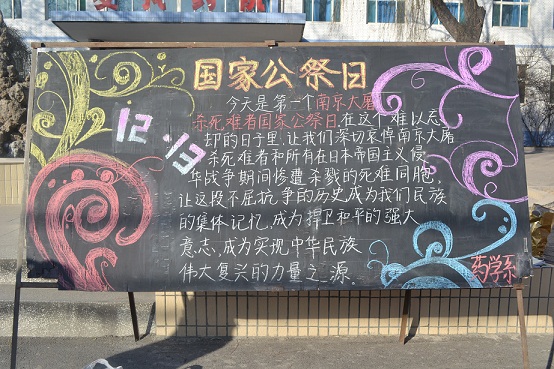 国家公祭日
12.13
今天是第一个南京大屠
杀死难者国家公祭日.在这个难以忘
却的日子里,让我们深切哀悼南京大屠
杀死难者和所有在日本帝国主义侵
华战争期间惨遭杀戮的死难同胞,
让这段不屈抗争的历史成为我们民族
的集体记忆,成为捍卫和平的强大
意志,成为实现中华民族
伟大复兴的力量之源。
药学系